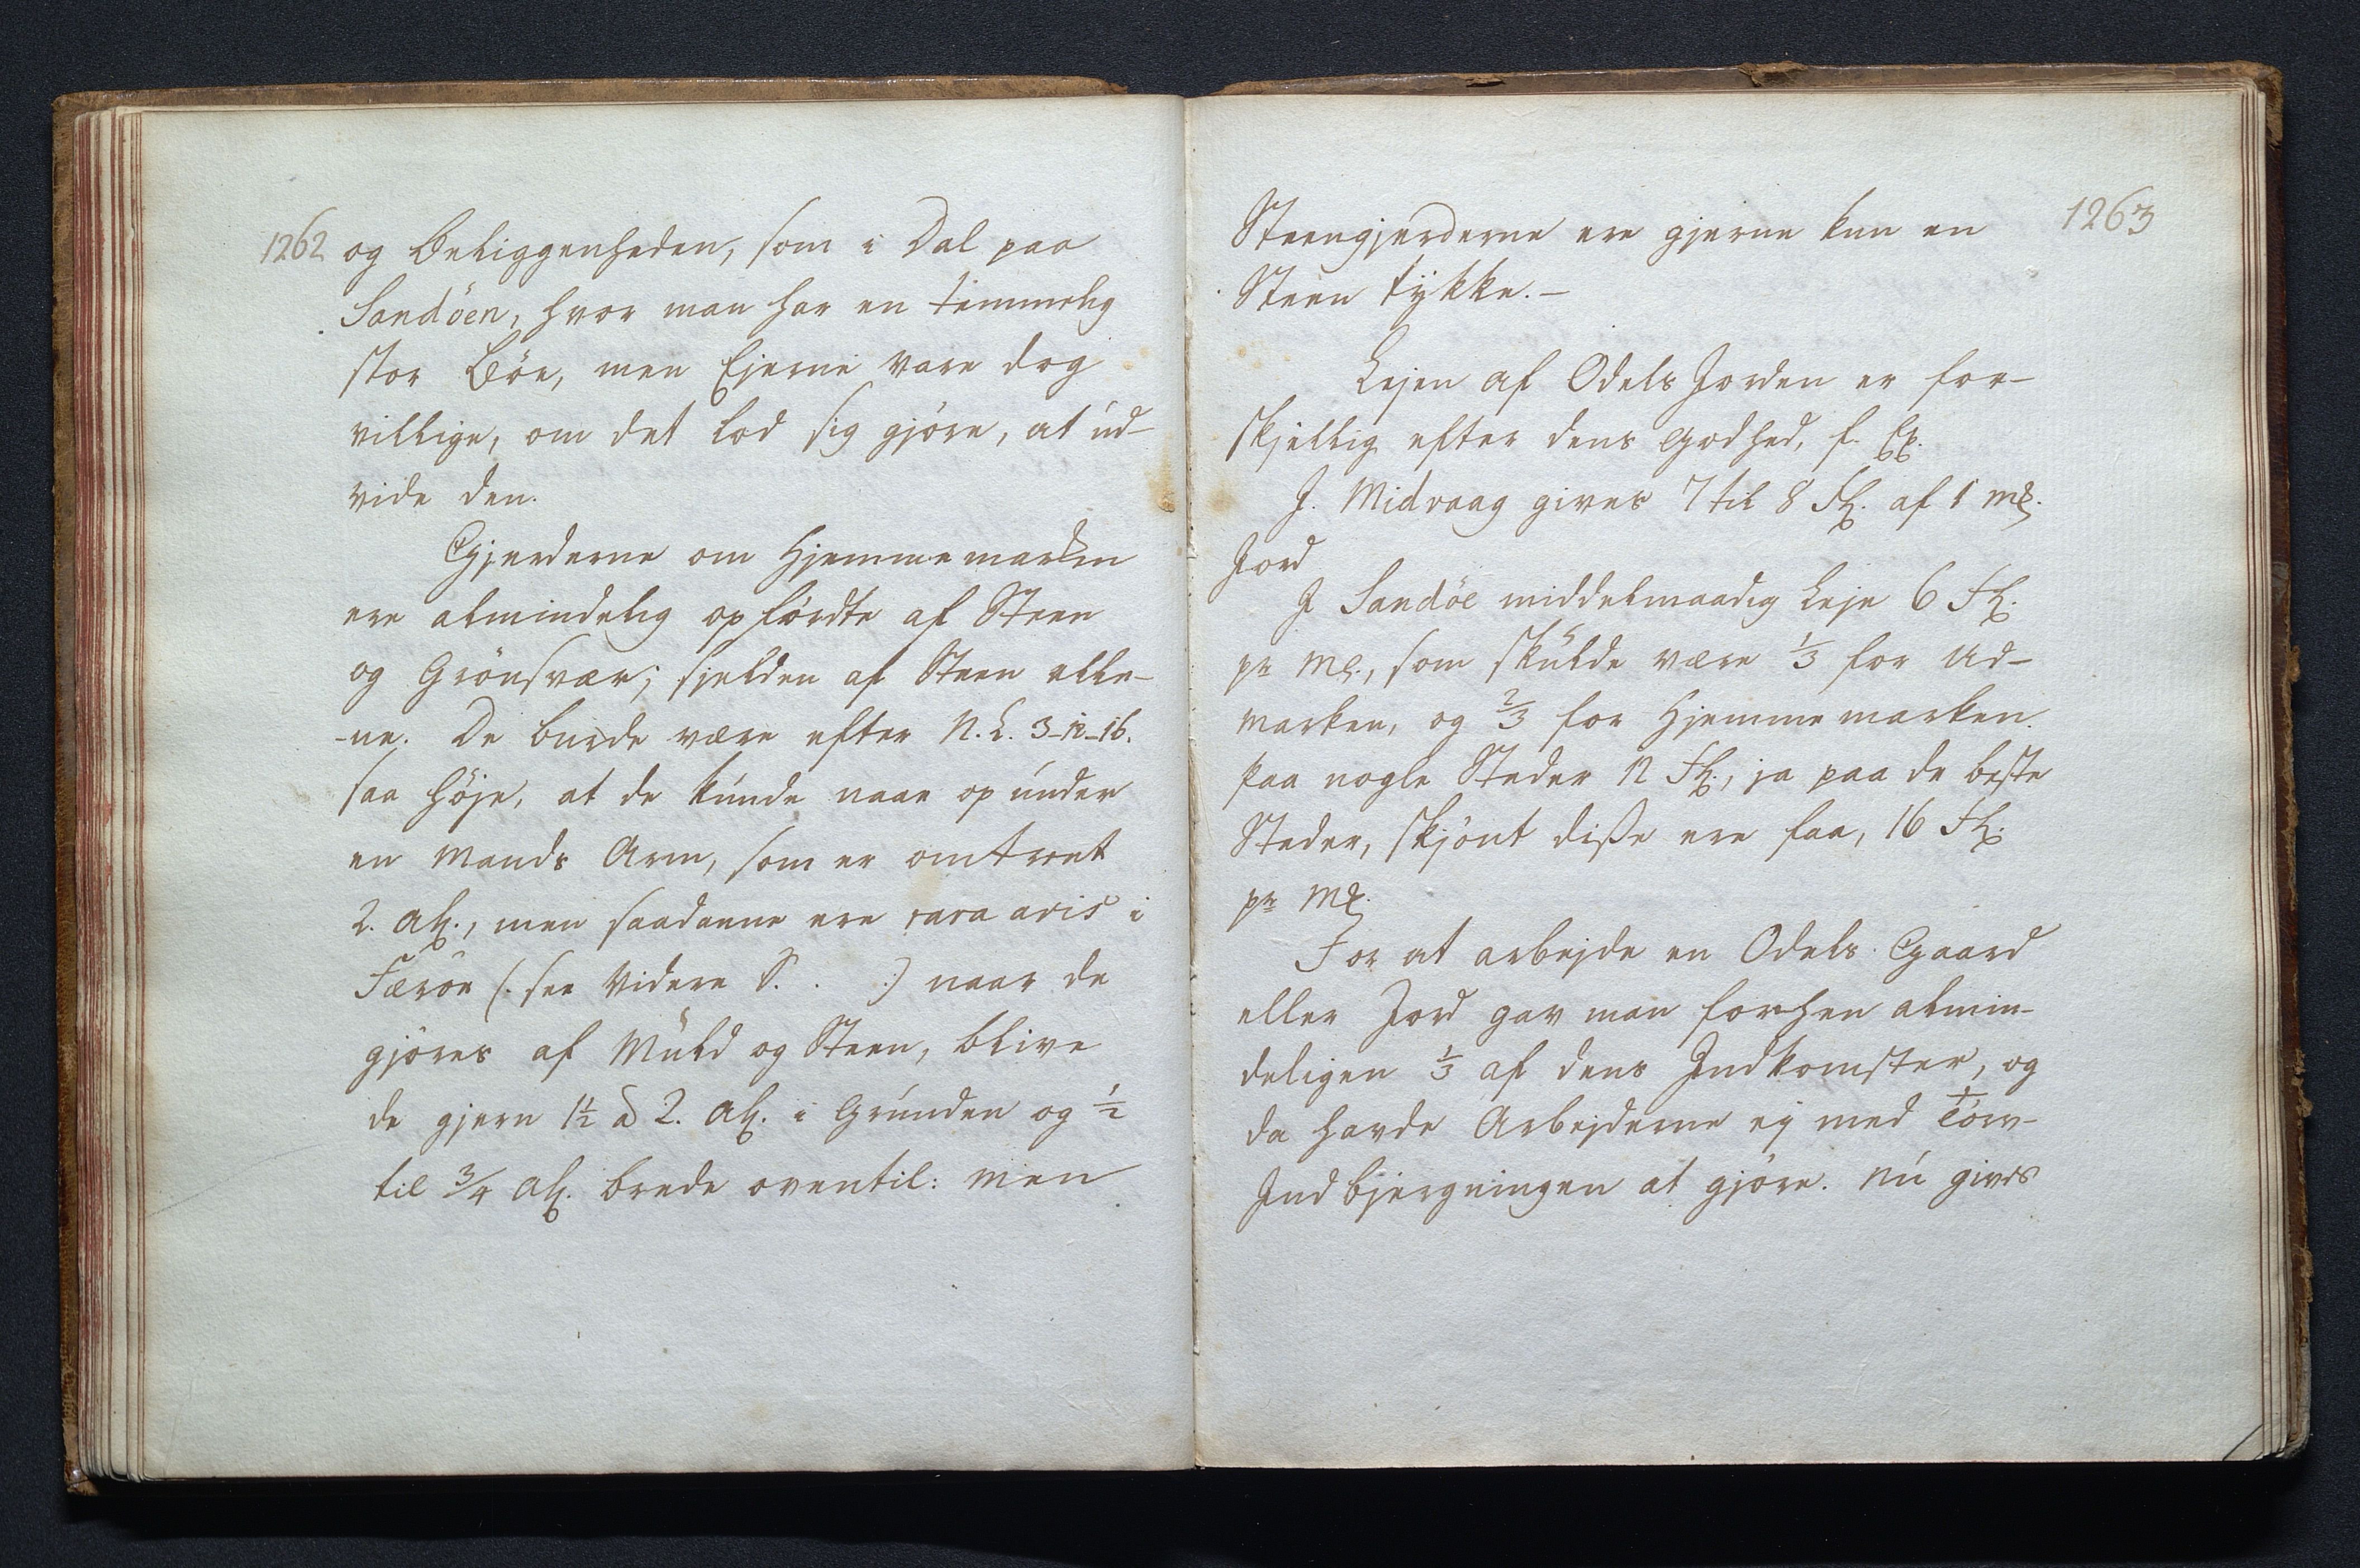 1262
og Beliggenheden, som i Dal paa
Sandöen, hvor man har en temmelig
stor Böe, men Ejerne vare dog
villige, om det lod sig gjöre, at ud-
vide den.
Gjerderne om Hjemmemarken
ere almindelig opfördte af Steen
og Grönsvær; sjelden af Steen alle-
-ne. De burde være efter N. L. 3-12-16.
saa höje, at de kunde naae op under
en Mands Arm, som er omtrent
2. Al., men saadanne ere rara avis i
Færöe (: see videre S. . :) naar de
gjöres af Muld og Steen, blive
de gjern 1½ à 2. Al. i Grunden og ½
til ¾ Al. brede oventil: men
1263
Steengjerderne ere gjerne kun en
Steen tykke.-
Lejen af Odels Jorden er for-
skjellig efter dens Godhed, f. Ex.
I. Midvaag gives 7 til 8 Sk. af 1 mk.
Jord
I Sandöe middelmaadig Leje 6 Sk.
pr Mk., som skulde være ⅓ for Ud-
marken, og ⅔ for Hjemmemarken.
Paa nogle Steder 12 Sk., ja paa de beste
Steder, skjönt disse ere faa, 16 Sk.
pr Mk.
For at arbejde en Odels Gaard
eller Jord gav man forhen almin-
deligen ⅓ af dens Indkomster, og
da havde Arbejderne ej med Törv-
Indbjergningen at gjöre. Nu gives